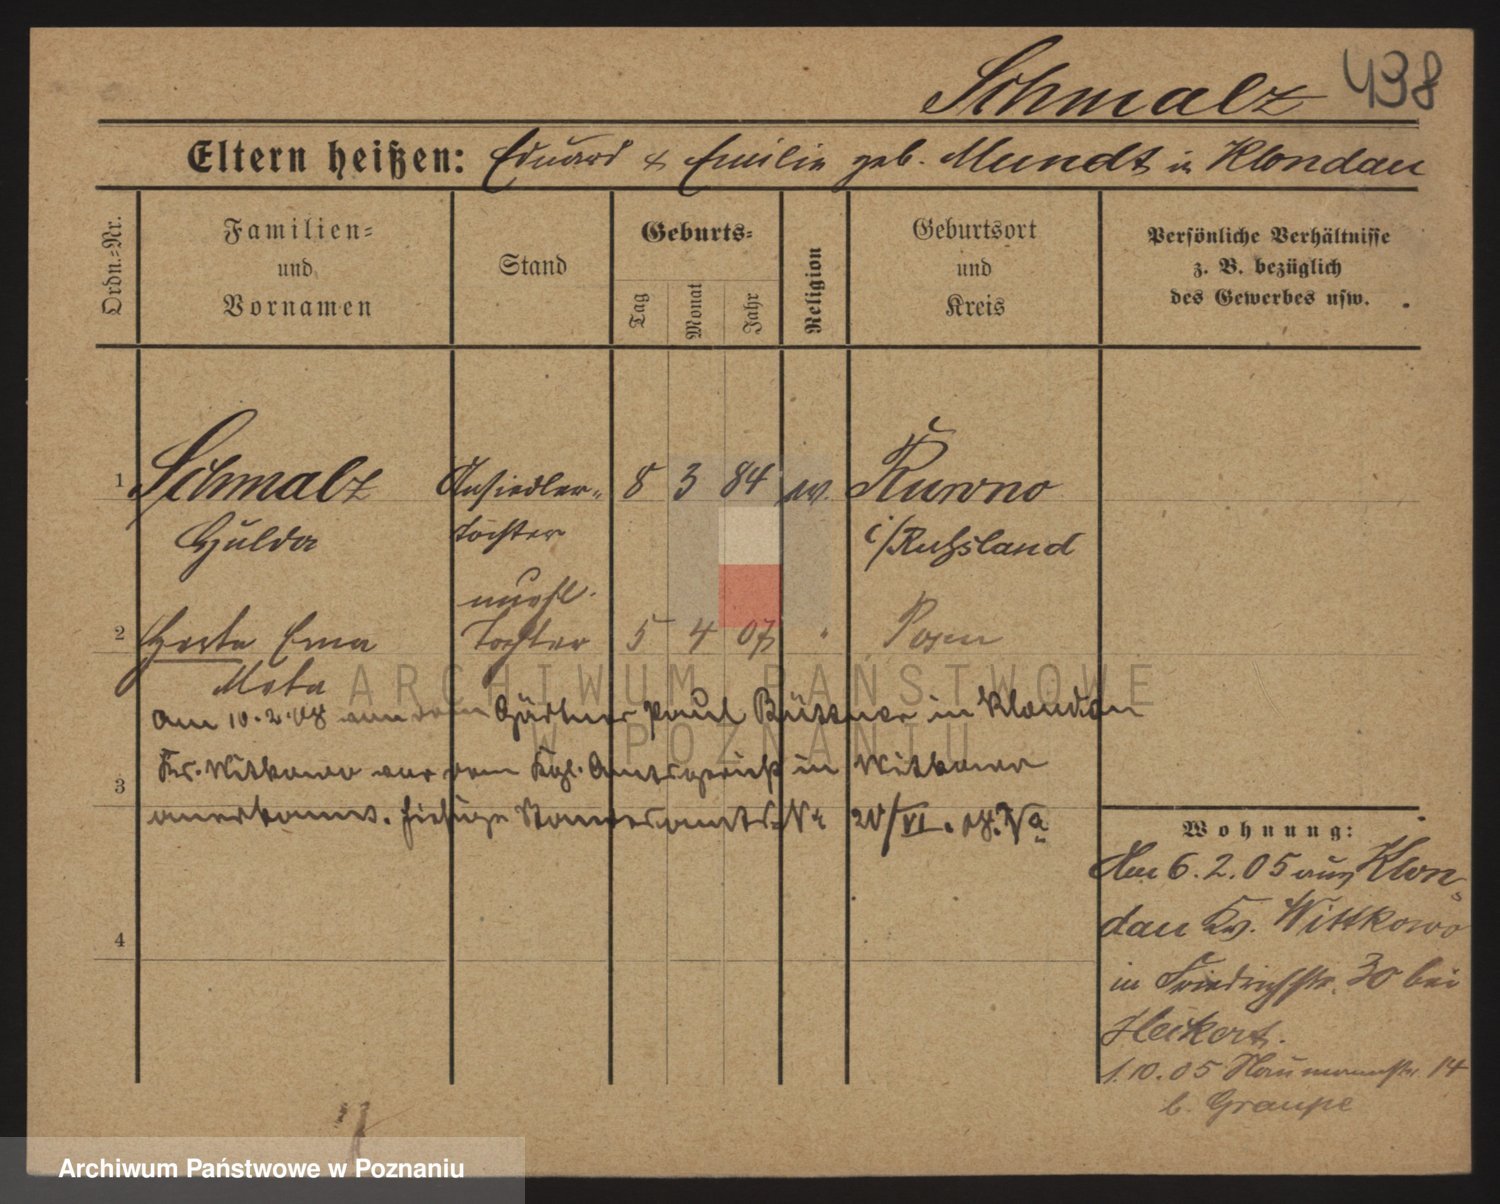 Schmalz 438
Eltern heißen: Eduard & Emilie geb. Mundt in Klondau
Ordn.-Nr.
Familien-
und
Vornamen
Stand
Geburts-
Tag
Monat
Jahr
Religion
Geburtsort
und
Kreis
Persönliche Verhältnisse
z. B. bezüglich
des Gewerbes usw.
1 Schmalz Ansiedler- 8 3 84 ev. Kuwno
Hulda tochter i/Rußland
unehl.
2 Herta Erna Tochter 5 4 07 " Posen
Meta
ARCHIWUM PAŃSTWOWE
W POZNANIU
am 10.2.08 von dem Gärtner Paul Büttner in Klondau
Kr. Witkowo vor dem Kgl. Amtsgericht in Witkowo
3
anerkannt. Hiesige Standesamts-Nr
4
Wohnung:
Am 6.2.05 aus Klon-
dau Kr. Wittkowo
in Friedrichstr. 30 bei
Heikert.
1.10.05 Naumannstr. 14
b. Graupe
Archiwum Państwowe w Poznaniu